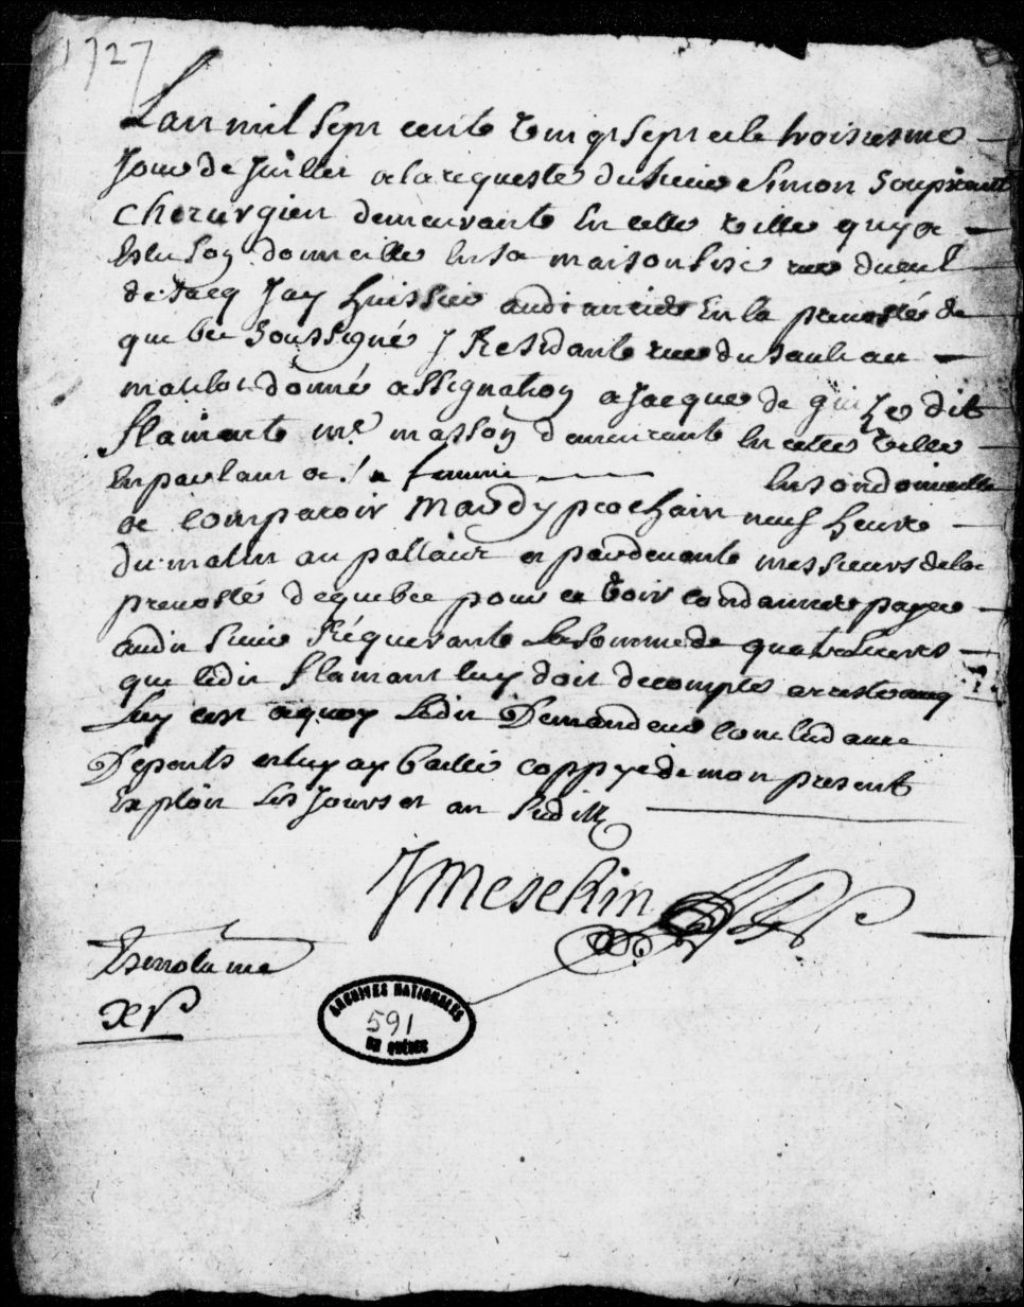 1727
Lan mil sept cents vingt sept et le troisiesme
Jour de Juillet a la requeste du sieur Simon Soupirant
Chirurgien demeurante En cette ville quy a
Eslu son domicille En sa maison size rue
de Jacq Jay huissier audiancier En la prevosté de
quebec Soussigné y Residante rue du Sault au
matelot donné assignation a Jacque de guize dit
flamante me masson demeurante En cette ville
En parlant a sa femme En son domicille
de Comparoir Mardy prochain neuf heure
du matin au pallais et pardevante messieurs de la
prevosté de quebec pour ce voir condamner payer
audit sieur Requerante La somme de quatre
que ledit flamant luy doit de compte areste
Luy est a quoy Ledit Demandeur Conclud avec
Depents et luy ay baillé coppye de mon present
Exploit Les Jours et an susdit
J Meschin
xvs
ARCHIVES NATIONALES
591
DU QUÉBEC